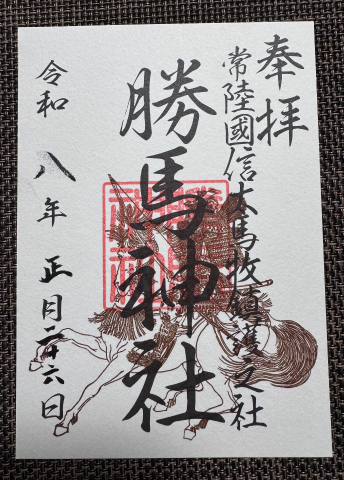 奉拝
常陸國信太馬牧鎮護之社
勝馬神社
令和八年正月二十六日